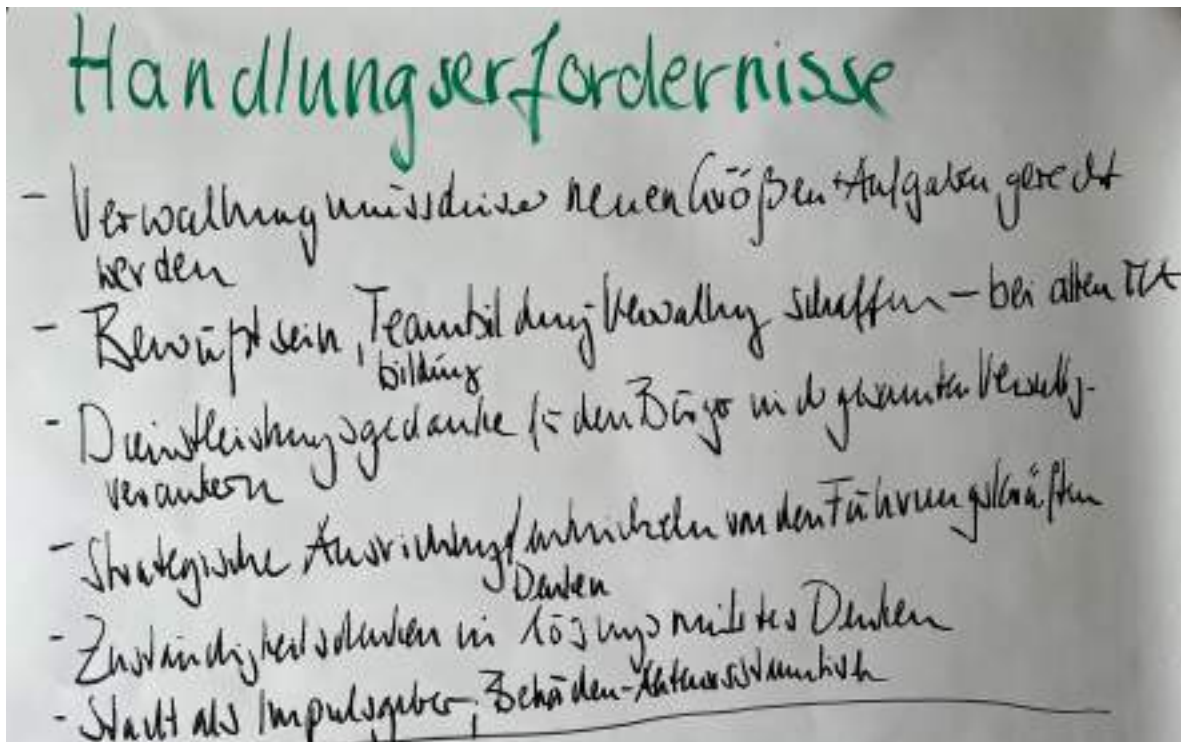 Handlungserfordernisse
- Verwaltung muss neuen Größen + Aufgaben gerecht
werden
- Bewußtsein, Teambildung Verwaltung schaffen – bei allen
bildung
- Dienstleistungsgedanke für den Bürger in d gesamten Verwaltg.
verankern
- Strategische Ausrichtung / entwickeln von den Führungskräften
Denken
- Zuständigkeitsdenken in Denken
- Stadt als Impulsgeber; Behörden-